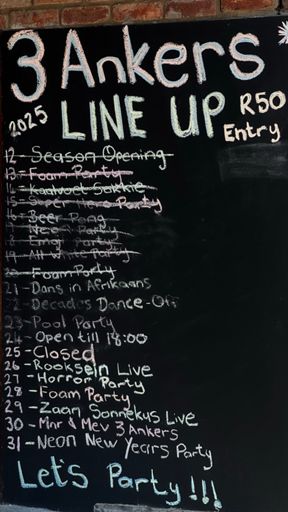 3 Ankers
2025 LINE UP R50
Entry
12 - Season Opening
13 - Foam Party
14 - Kaalvoet Sokkie
15 - Super Hero Party
16 - Beer Pong
Neon Party
18 - Emoji Party
19 - All White Party
20 - Foam Party
21 - Dans in Afrikaans
22 - Decades Dance-Off
23 - Pool Party
24 - Open till 18:00
25 - Closed
26 - Rooksein Live
27 - Horror Party
28 - Foam Party
29 - Zaan Sonnekus Live
30 - Mnr & Mev 3 Ankers
31 - Neon New Years Party
Let's Party!!!